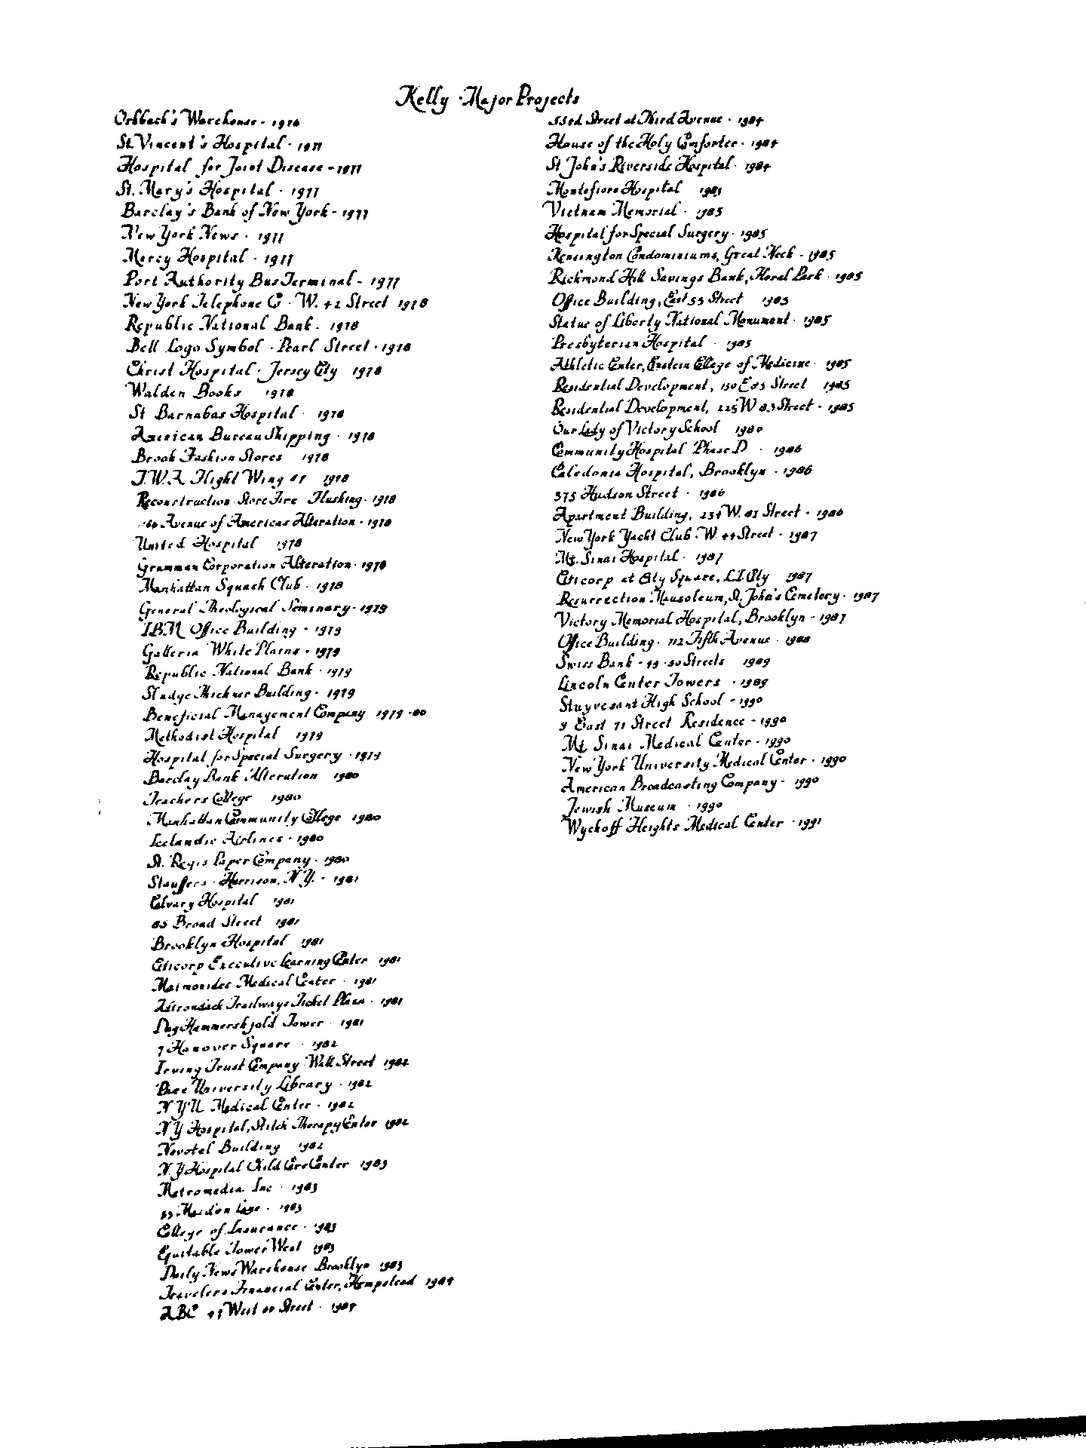 Kelly · Major Projects
Orbach's Warehouse - 1976
St. Vincent's Hospital · 1977
Hospital for Joint Disease - 1977
St. Mary's Hospital · 1977
Barclay's Bank of New York - 1977
New York News · 1977
Mercy Hospital · 1977
Port Authority Bus Terminal - 1977
New York Telephone Co · W. 42 Street 1978
Republic National Bank · 1978
Bell Logo Symbol · Pearl Street · 1978
Christ Hospital · Jersey City 1978
Walden Books 1978
St Barnabas Hospital · 1978
American Bureau Shipping · 1978
Brook Fashion Stores 1978
T.W.A. Flight Wing 1978
Reconstruction Store Fire Flushing · 1978
Avenue of Americas Alteration · 1978
United Hospital 1978
Grumman Corporation Alteration · 1978
Manhattan Squash Club · 1978
General Theological Seminary · 1979
IBM Office Building - 1979
Galleria White Plains · 1979
Republic National Bank · 1979
Building · 1979
Beneficial Management Company 1979-80
Methodist Hospital 1979
Hospital for Special Surgery · 1979
Barclay Bank Alteration 1980
Teachers College 1980
Manhattan Community College 1980
Icelandic Airlines · 1980
St. Regis Paper Company · 1980
Stauffers · Harrison, N.Y. - 1981
Calvary Hospital 1981
85 Broad Street 1981
Brooklyn Hospital 1981
Citicorp Executive Learning Center 1981
Maimonides Medical Center · 1981
Adirondack Trailways Ticket Plaza · 1981
Dag Hammerskjold Tower · 1981
7 Hanover Square · 1982
Irving Trust Company Wall Street 1982
Pace University Library · 1982
NYU Medical Center · 1982
NY Hospital, Stitch Therapy Center 1982
Novotel Building 1982
N.Y Hospital Child Care Center 1983
Metromedia Inc · 1983
33 Maiden Lane · 1983
College of Insurance · 1983
Equitable Tower West 1983
Daily News Warehouse Brooklyn 1983
Travelers Financial Center, Hempstead 1984
ABC 47 West 66 Street · 1984
53rd Street at Third Avenue · 1984
House of the Holy Comforter · 1984
St John's Riverside Hospital · 1984
Montefiore Hospital 1985
Vietnam Memorial · 1985
Hospital for Special Surgery · 1985
Kensington Condominiums, Great Neck · 1985
Richmond Hill Savings Bank, Floral Park · 1985
Office Building, East 53 Street 1985
Statue of Liberty National Monument · 1985
Presbyterian Hospital · 1985
Athletic Center, Einstein College of Medicine · 1985
Residential Development, 150 E 85 Street 1985
Residential Development, 225 W 83 Street · 1985
Our Lady of Victory School 1980
Community Hospital Phase D · 1986
Caledonia Hospital, Brooklyn · 1986
375 Hudson Street · 1986
Apartment Building, 234 W. 81 Street · 1986
New York Yacht Club · W. 44 Street · 1987
Mt. Sinai Hospital · 1987
Citicorp at City Square, L.I. City 1987
Resurrection Mausoleum, St. John's Cemetery · 1987
Victory Memorial Hospital, Brooklyn - 1987
Office Building · 112 Fifth Avenue · 1988
Swiss Bank - 49-50 Streets 1989
Lincoln Center Towers · 1989
Stuyvesant High School - 1990
9 East 71 Street Residence - 1990
Mt. Sinai Medical Center - 1990
New York University Medical Center · 1990
American Broadcasting Company - 1990
Jewish Museum · 1990
Wyckoff Heights Medical Center · 1991